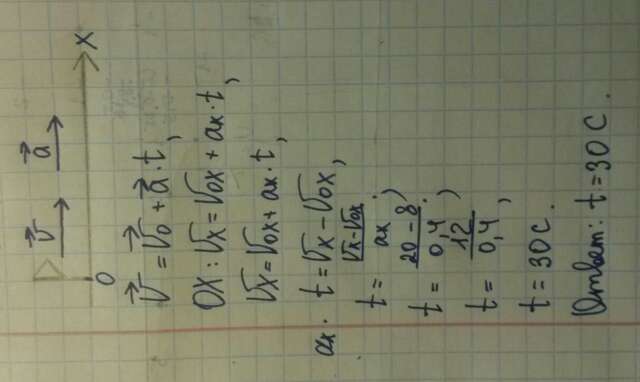 v⃗ a⃗
0 x
v⃗ = v⃗₀ + a⃗·t,
OX: vx = v₀x + ax·t,
vx = v₀x + ax·t,
ax·t = vx - v₀x,
t = (vx - v₀x)/ax;
t = (20 - 8)/0,4;
t = 12/0,4,
t = 30 с.
Ответ: t = 30 с.